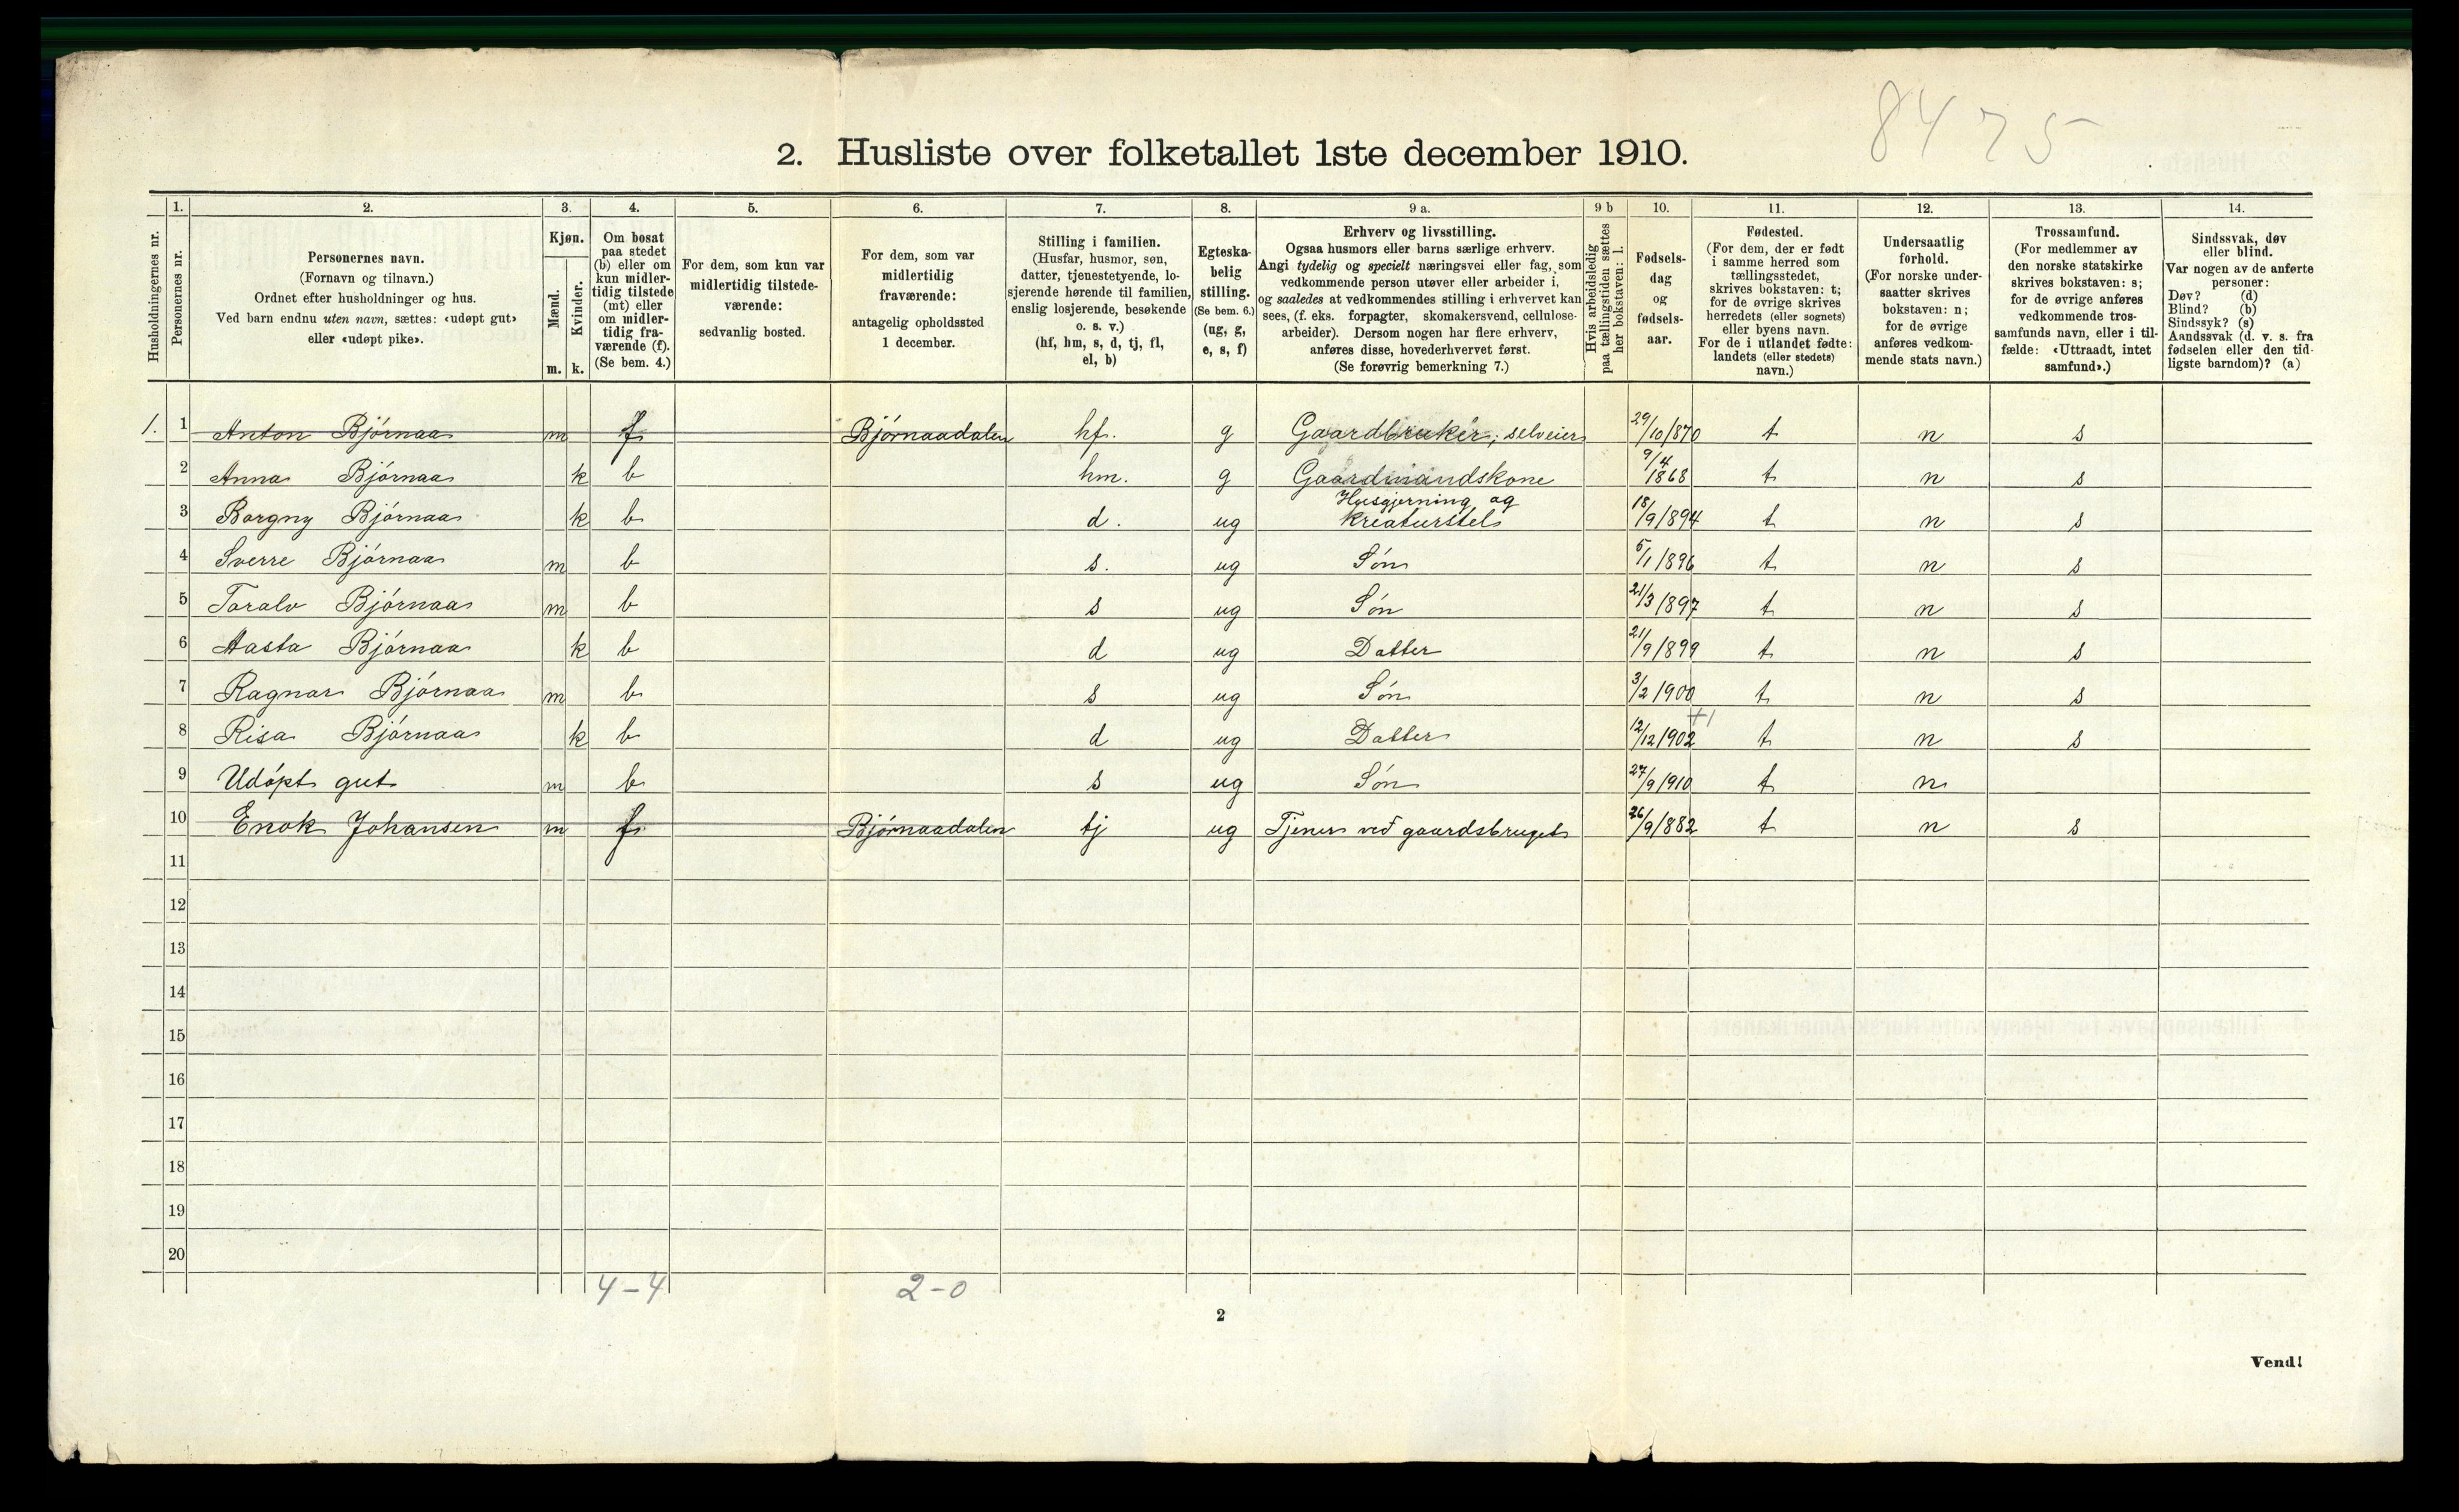 8475
2. Husliste over folketallet 1ste december 1910.
Husholdningernes nr.
1.
Personernes nr.
2.
Personernes navn.
(Fornavn og tilnavn.)
Ordnet efter husholdninger og hus.
Ved barn endnu uten navn, sættes: «udøpt gut»
eller «udøpt pike».
3.
Kjøn.
Mænd.
Kvinder.
m. k.
4.
Om bosat
paa stedet
(b) eller om
kun midler-
tidig tilstede
(mt) eller
om midler-
tidig fra-
værende (f).
(Se bem. 4.)
5.
For dem, som kun var
midlertidig tilstede-
værende:
sedvanlig bosted.
6.
For dem, som var
midlertidig
fraværende:
antagelig opholdssted
1 december.
7.
Stilling i familien.
(Husfar, husmor, søn,
datter, tjenestetyende, lo-
sjerende hørende til familien,
enslig losjerende, besøkende
o. s. v.)
(hf, hm, s, d, tj, fl,
el, b)
8.
Egteska-
belig
stilling.
(Se bem. 6.)
(ug, g,
e, s, f)
9 a.
Erhverv og livsstilling.
Ogsaa husmors eller barns særlige erhverv.
Angi tydelig og specielt næringsvei eller fag, som
vedkommende person utøver eller arbeider i,
og saaledes at vedkommendes stilling i erhvervet kan
sees, (f. eks. forpagter, skomakersvend, cellulose-
arbeider). Dersom nogen har flere erhverv,
anføres disse, hovederhvervet først.
(Se forøvrig bemerkning 7.)
9 b
Hvis arbeidsledig
paa tællingstiden sættes
her bokstaven: l.
10.
Fødsels-
dag
og
fødsels-
aar.
11.
Fødested.
(For dem, der er født
i samme herred som
tællingsstedet,
skrives bokstaven: t;
for de øvrige skrives
herredets (eller sognets)
eller byens navn.
For de i utlandet fødte:
landets (eller stedets)
navn.)
12.
Undersaatlig
forhold.
(For norske under-
saatter skrives
bokstaven: n;
for de øvrige
anføres vedkom-
mende stats navn.)
13.
Trossamfund.
(For medlemmer av
den norske statskirke
skrives bokstaven: s;
for de øvrige anføres
vedkommende tros-
samfunds navn, eller i til-
fælde: «Uttraadt, intet
samfund».)
14.
Sindssvak, døv
eller blind.
Var nogen av de anførte
personer:
Døv? (d)
Blind? (b)
Sindssyk? (s)
Aandssvak (d. v. s. fra
fødselen eller den tid-
ligste barndom)? (a)
1. 1 Anton Bjørnaa m f Bjørnaadalen hf. g Gaardbruker, selveier 29/10/870 t n s
2 Anna Bjørnaa k b hm. g Gaardmandskone 9/4 1868 t n s
3 Borgny Bjørnaa k b d. ug Husgjerning og kreaturstel 18/9/894 t n s
4 Sverre Bjørnaa m b s. ug Søn 5/1 1896 t n s
5 Toralv Bjørnaa m b s ug Søn 21/3 1897 t n s
6 Aasta Bjørnaa k b d ug Datter 21/9/899 t n s
7 Ragnar Bjørnaa m b s ug Søn 3/2 1900 t n s
8 Risa Bjørnaa k b d ug Datter 12/12 1902 +1 t n s
9 Udøpt gut m b s ug Søn 27/9 1910 t n
10 Enok Johansen m f Bjørnaadalen tj ug Tjener ved gaardsbruget 26/9/882 t n s
11
12
13
14
15
16
17
18
19
20
4-4 2-0
2
Vend!